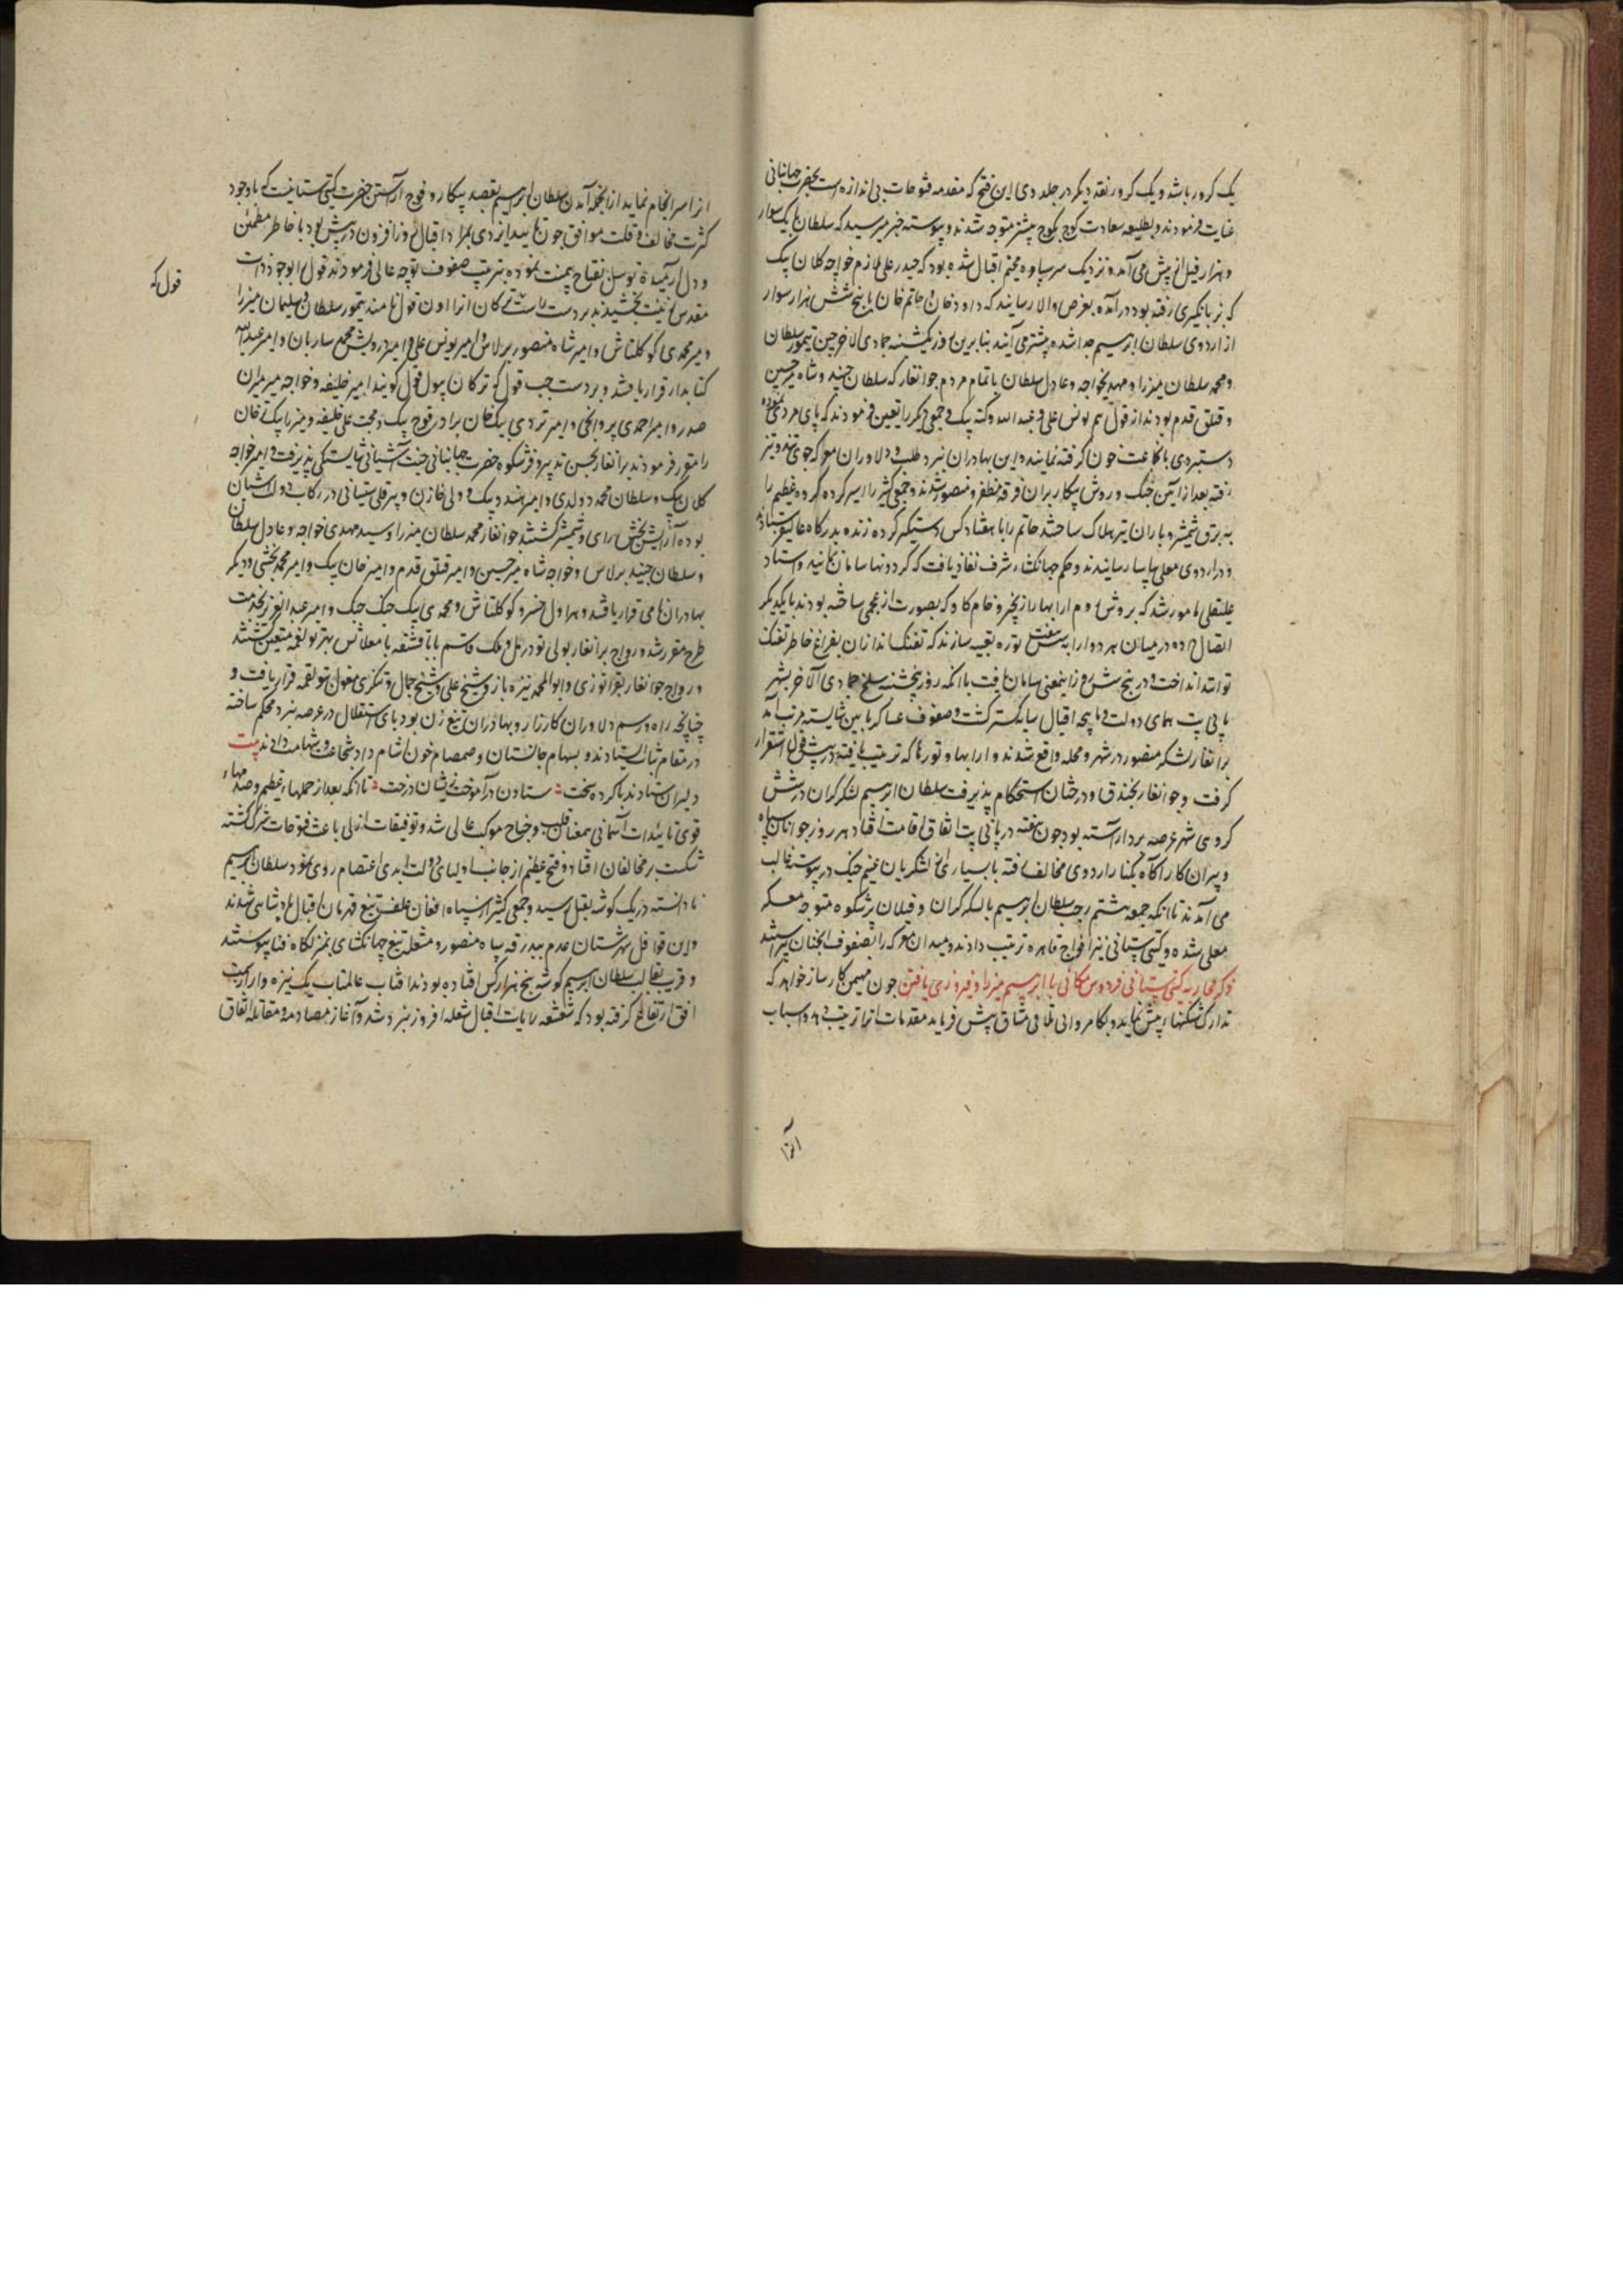 یک کرور باشد و یک کرور نقد دیکر در جلدوی این فتح که مقدمه فتوحات بی اندازه است بحضرت جهانبانی
عنایت فرمودند و بطلیعه سعادت کوچ بکوچ پیشتر متوجه شدند و پیوسته خبر میرسید که سلطان با یک سوار
و هزار فیل پیش می آمد و نزدیک سرساوه مخیم اقبال شده بود که حیدر علی ملازم خواجه کلان بیک
که بزبانکیری رفته بود در آمده بعرض والا رسانید که داود خان و حاتم خان با پنج شش هزار سوار
از اردوی سلطان ابراهیم جدا شده پیشتر می آیند بنابرین روز یکشنبه جمادی الاخر حسین تیمور سلطان
و محمد سلطان میرزا و مهدی خواجه و عادل سلطان با تمام مردم جوانغار که سلطان جنید و شاه میر حسین
و قتلق قدم بودند از قول هم یونس علی و عبد الله و کته بیک و جمعی دیکر را تعین فرمودند که پای مردی نموده
دستبردی با شجاعت خون کرفته نمایند و این بهادران نبرد طلب و دلاوران معرکه جوی تند و تیز
رفته بعد از آیین جنک و روش پیکار بران فرقه مظفر و منصور شدند و جمعی کثیر را اسیر کرده کروه عظیم را
به برق شمشیر و باران تیر هلاک ساختند حاتم را با هفتاد کس دستیکیر کرده زنده بدرکاه عالی فرستادند
و در اردوی معلی بیاسا رسانیدند و حکم جهانکشاء شرف نفاذ یافت که کردونها سامان نمایند و استاد
علیقلی مامور شد که بروش روم ارابها را بزنجیر و خام کاو که بصورت ارغمجی ساخته بودند با یکدیکر
اتصال داده در میان هر دو ارابه شش هفت توره تعبیه سازند که تفنک اندازان بفراغ خاطر تفنک
توانند انداخت و در پنج شش روز اینمعنی سامان یافت تا انکه روز پنجشنبه سلخ جمادی الاخر بشهر
پانی پت همای دولت و پنجه اقبال سایه کستر کشت و صفوف عساکر بآیین شایسته مرتب آمد
برانغار لشکر منصور در شهر و محله واقع شدند و ارابها و تورها که ترتیب یافته در پیش قول استقرار
کرفت و جوانغار بخندق و درختان استحکام پذیرفت سلطان ابراهیم با لشکر کران در شش
کروهی شهر عرصه نبرد آراسته بود چون هفته در پانی پت اتفاق اقامت افتاد هر روز جوانان سپاه
و پیران کار آکاه بکنار اردوی مخالف رفته با بسیاری از لشکریان غنیم جنک در پیوسته غالب
می آمدند تا انکه جمعه هشتم رجب سلطان ابراهیم با لشکر کران و فیلان پرشکوه متوجه معسکر
معلی شده و کیتی ستانی نیز افواج قاهره ترتیب دادند و میدان معرکه را بصفوف آنچنان آراستند
ذکر محاربه کیتی ستانی فردوس مکانی با ابراهیم میرزا و فیروزی یافتن چون مهیمن کارساز خواهد که
تدارک شکستها پیش نماید و بکامروائی تلافی مشاق پیش فرماید مقدمات انرا ترتیب دهد و اسباب
انرا
انرا سرانجام نماید از انجمله آمدن سلطان ابراهیم بقصد پیکار و فوج آراستن حضرت کیتی ستانیست که با وجود
کثرت مخالف و قلت موافق چون تایید ایزدی همراه و اقبال روز افزون در پیش بود با خاطر مطمئن
و دل آرمیده توسل بفتاح بیمنت نموده بترتیب صفوف توجه عالی فرمودند قول بوجود ذات
مقدس زینت بخشیدند بر دست راست که ترکان انرا اون قول نامند تیمور سلطان و سلیمان میرزا
و میر محمدی کوکلتاش و امیر شاه منصور برلاس و امیر یونس علی و امیر درویش محمد ساربان و امیر عبدالله
کتابدار قرار یافتند و بر دست چپ قول که ترکان سول قول کویند امیر خلیفه و خواجه میر میران
صدر و امیر احمدی پروانچی و امیر تردی بیک خان برادر قوج بیک و محب علی خلیفه و میرزا بیک ترخان
را مقرر فرمودند برانغار بحسن تدبیر و فر شکوه حضرت جهانبانی جنت آشیانی شایستکی پذیرفت و امیر خواجه
کلان بیک و سلطان محمد دولدی و امیر هندو بیک و ولی خازن و پیر قلی سیستانی در رکاب دولت ایشان
بوده آرایش بخش رای و شمشیر کشتند جوانغار محمد سلطان میرزا و سید مهدی خواجه و عادل سلطان
و سلطان جنید برلاس و خواجه شاه میر حسین و امیر قتلق قدم و امیر خان بیک و امیر محمد بخشی و دیکر
بهادران نامی قرار یافتند و هراول خسرو کوکلتاش و محمدی بیک جنک جنک و امیر عبدالعزیز بخدمت
طرح مقرر شد و در اوج برانغار بولی تودر ملک قاسم بابا قشقه با مغلانش بتولغمه متعین کشتند
و در اوج جوانغار بقراتوزی و ابوالمحمد نیزه باز و شیخ علی و شیخ جمال و تنکری مغول بتولغمه قرار یافت و
چنانچه راه و رسم دلاوران کارزار و بهادران تیغ زن بود پای استقلال در عرصه نبرد محکم ساخته
در مقام ثبات ایستادند و بسهام جانستان و صمصام خون آشام داد شجاعت و شهامت دادند بیت
دلیران ستادند پا کرده سخت ستادن در آموخت زیشان درخت تا انکه بعد از حملهاء عظیم و صدمهاء
قوی تائیدات آسمانی همعنان قلب و جناح موکب عالی شد و توفیقات ازلی باعث فتوحات بزرک کشته
شکست بر مخالفان افتاد و فتح عظیم از جانب اولیای دولت ابدی اعتصام روی نمود سلطان ابراهیم
نادانسته در یک کوشه بقتل رسید و جمعی کثیر از سپاه افغان علف تیغ قهرمان اقبال پادشاهی شدند
و این قوافل شهرستان عدم ببدرقه سپاه منصور و مشعله تیغ جهانکشای بمنزلکاه فنا پیوستند
و قریب بقالب سلطان ابراهیم کوشه پنج هزار کس افتاده بودند افتاب عالمتاب یک نیزه وار از سمت
افق ارتفاع کرفته بود که شعشعه رایات اقبال شعله افروز نبرد شد و آغاز مصادمه و مقاتله اتفاق
قول که